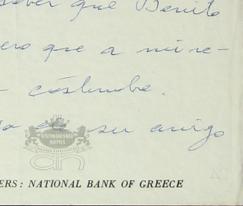 saber que Benito
ero que a mi re-
costumbre.
su amigo
ERS : NATIONAL BANK OF GREECE